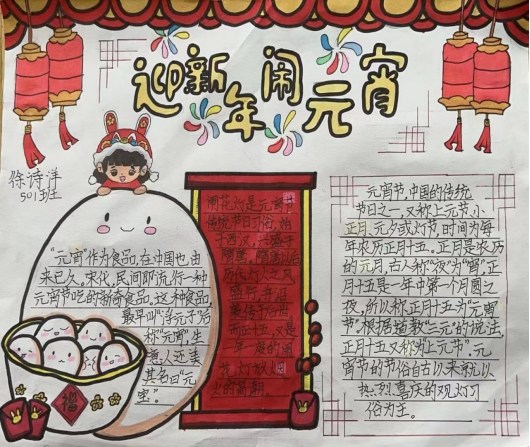 迎新年闹元宵
徐诗洋
501班
"元宵"作为食品,在中国也由
来已久。宋代,民间即流行一种
元宵节吃的新奇食品。这种食品,
最早叫"浮元子"后
称"元宵",生
意人还美
其名曰"元
宝"。
福
闹花灯是元宵节
传统节日习俗,始
于西汉,
隋唐,隋唐以后
历代灯
盛行,并沿
袭传于后世
而正月十五,又是
一年一度的闹
花灯放烟
火的高潮
元宵节,中国的传统
节日之一,又称上元节、小
正月、元夕或灯节,时间为每
年农历正月十五。正月是农历
的元月,古人称"夜"为"宵",正
月十五是一年中第一个月圆之
夜,所以称正月十五为"元宵
节"。根据道教"三元"的说法,
正月十五又称为"上元节"。元
宵节的节俗自古以来就以
热烈喜庆的观灯习
俗为主。